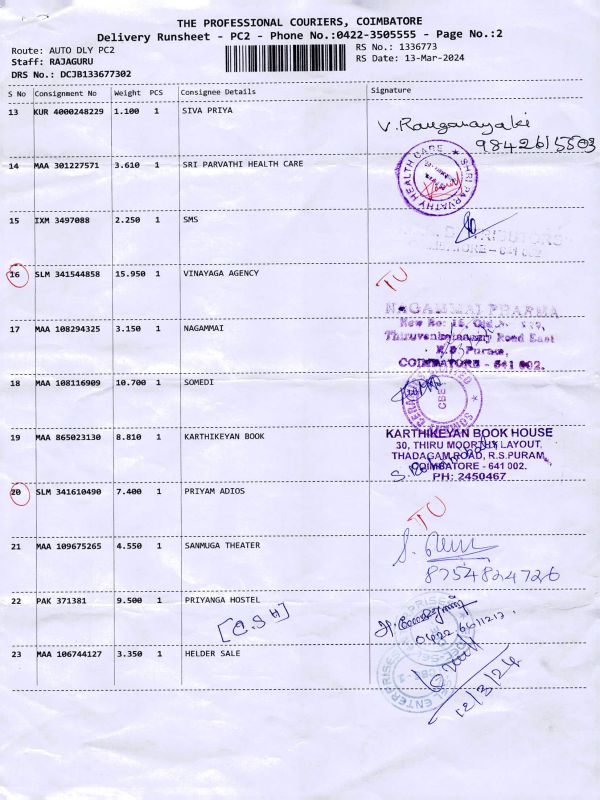 THE PROFESSIONAL COURIERS, COIMBATORE
Delivery Runsheet - PC2 - Phone No.:0422-3505555 - Page No.:2
Route: AUTO DLY PC2
RS No.: 1336773
Staff: RAJAGURU
RS Date: 13-Mar-2024
DRS No.: DCJB133677302
S No Consignment No Weight PCS Consignee Details Signature
13 KUR 4000248229 1.100 1 SIVA PRIYA
V. Ranganayaki
9842615503
14 MAA 301227571 3.610 1 SRI PARVATHI HEALTH CARE
SHRI PARVATHY HEALTH CARE
15 IXM 3497088 2.250 1 SMS
16 SLM 341544858 15.950 1 VINAYAGA AGENCY
TU
NAGAMMAI PHARMA
17 MAA 108294325 3.150 1 NAGAMMAI
Road East
R.S. Puram,
COIMBATORE - 641 002.
18 MAA 108116909 10.700 1 SOMEDI
CBE
19 MAA 865023130 8.810 1 KARTHIKEYAN BOOK
KARTHIKEYAN BOOK HOUSE
30, THIRU MOORTHY LAYOUT,
THADAGAM ROAD, R.S.PURAM,
COIMBATORE - 641 002.
PH: 2450467
20 SLM 341610490 7.400 1 PRIYAM ADIOS
TU
21 MAA 109675265 4.550 1 SANMUGA THEATER
8754824726
22 PAK 371381 9.500 1 PRIYANGA HOSTEL
23 MAA 106744127 3.350 1 HELDER SALE
12/3/24